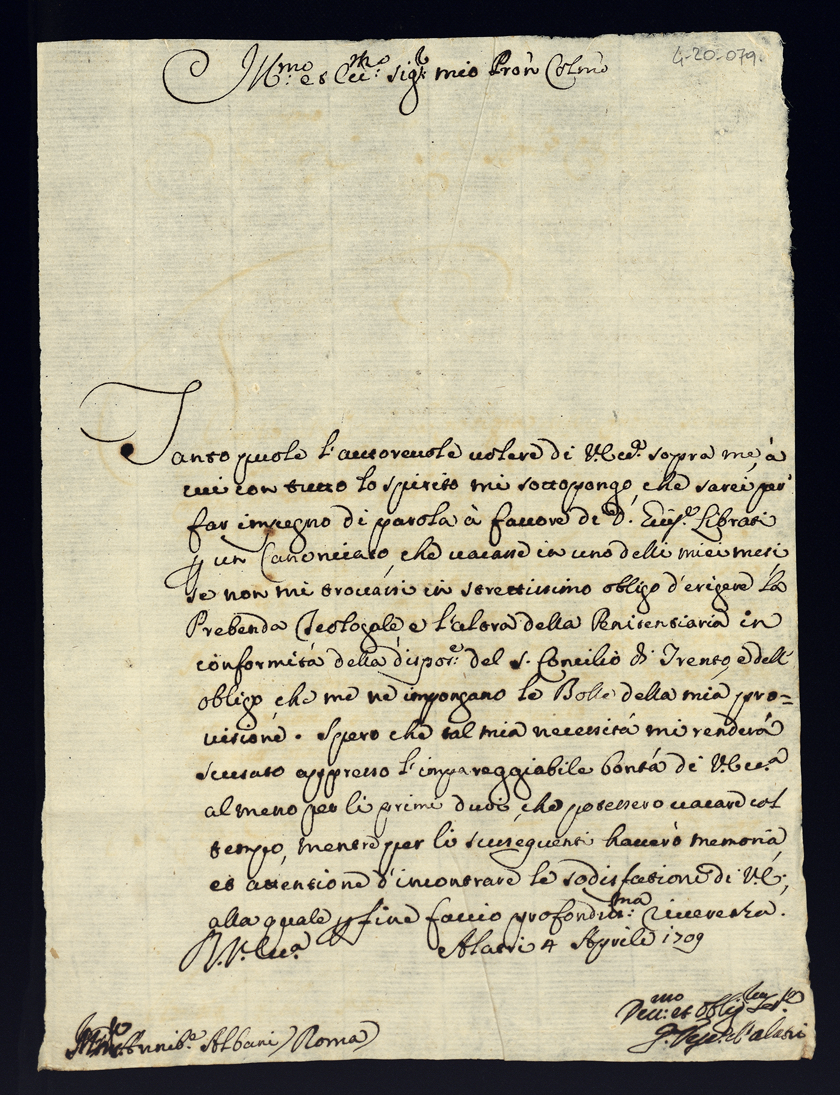 4-20-079.
Ill.mo et Ecc.mo Sig.r mio Pron Colmo
Tanto puole l'autoreuole uolere di V. Ecc.a sopra me, à
cui con tutto lo spirito mi sottopongo, che sarei per
far impegno di parola à fauore di D. Librati
p un Canonicato, che uacasse in uno delli miei mesi
se non mi trouassi in strettissimo obligo d'erigere la
Prebenda Teologale e l'altra della Penitentiaria in
conformità della dispos.e del S. Concilio di Trento, e dell'
obligo, che me ne impongano le Bolle della mia pro=
uisione. Spero che tal mia necessità mi renderà
scusato appresso l'impareggiabile bontà di V. Ecc.a
al meno per li primi dudi, che potessero uacare col
tempo, mentre per li susseguenti hauerò memoria
et attentione d'incontrare le sodisfationi di V. E.,
alla quale p fine faccio profondiss.ma riuerenza.
D. V. Ecc.a Alatri 4 Aprile 1709
Deu.mo et oblig.
Annib.e Albani Roma
d'Alatri